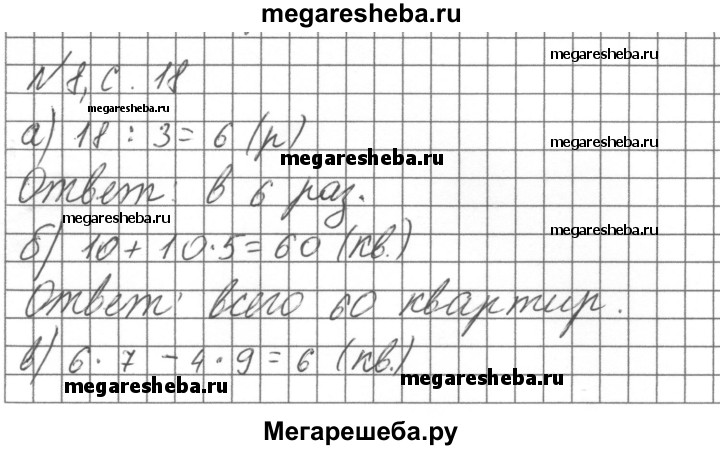 megaresheba.ru
megaresheba.ru
№8, с. 18
megaresheba.ru
а) 18 : 3 = 6 (р)
megaresheba.ru
megaresheba.ru
Ответ: в 6 раз.
megaresheba.ru
megaresheba.ru
б) 10 + 10·5 = 60 (кв.)
Ответ: всего 60 квартир.
в) 6·7 - 4·9 = 6 (кв.)
megaresheba.ru
megaresheba.ru
Мегарешеба.ру